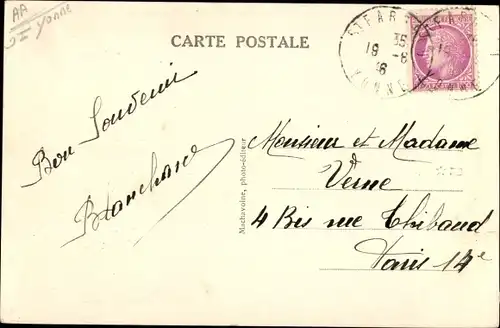 AA
Yonne
CARTE POSTALE
Bon Souvenir
Blanchard
Machavoine, photo-éditeur
Monsieur et Madame
Verne
4 Bis rue Thibaud
Paris 14e
YONNE